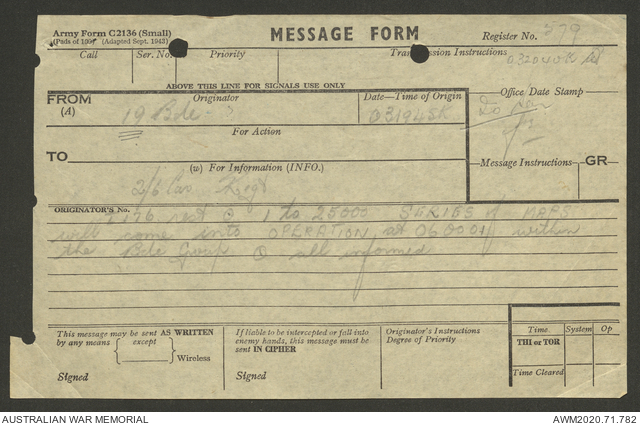 Army Form C2136 (Small)
(Pads of 100) (Adapted Sept. 1943)
MESSAGE FORM
Register No. 779
Call
Ser. No.
Priority
Transmission Instructions
032040K
ABOVE THIS LINE FOR SIGNALS USE ONLY
FROM
(A)
Originator
19 Bde
Date—Time of Origin
031945K
Office Date Stamp
For Action
TO
(w) For Information (INFO.)
Message Instructions
GR
2/6 Cav Regt
ORIGINATOR'S No.
1 to 25000 SERIES of MAPS
will come into OPERATION at 060001 within
the Bde Group all informed
This message may be sent AS WRITTEN
by any means except
Wireless
Signed
If liable to be intercepted or fall into
enemy hands, this message must be
sent IN CIPHER
Signed
Originator's Instructions
Degree of Priority
Time System Op
THI or TOR
Time Cleared
AUSTRALIAN WAR MEMORIAL
AWM2020.71.782